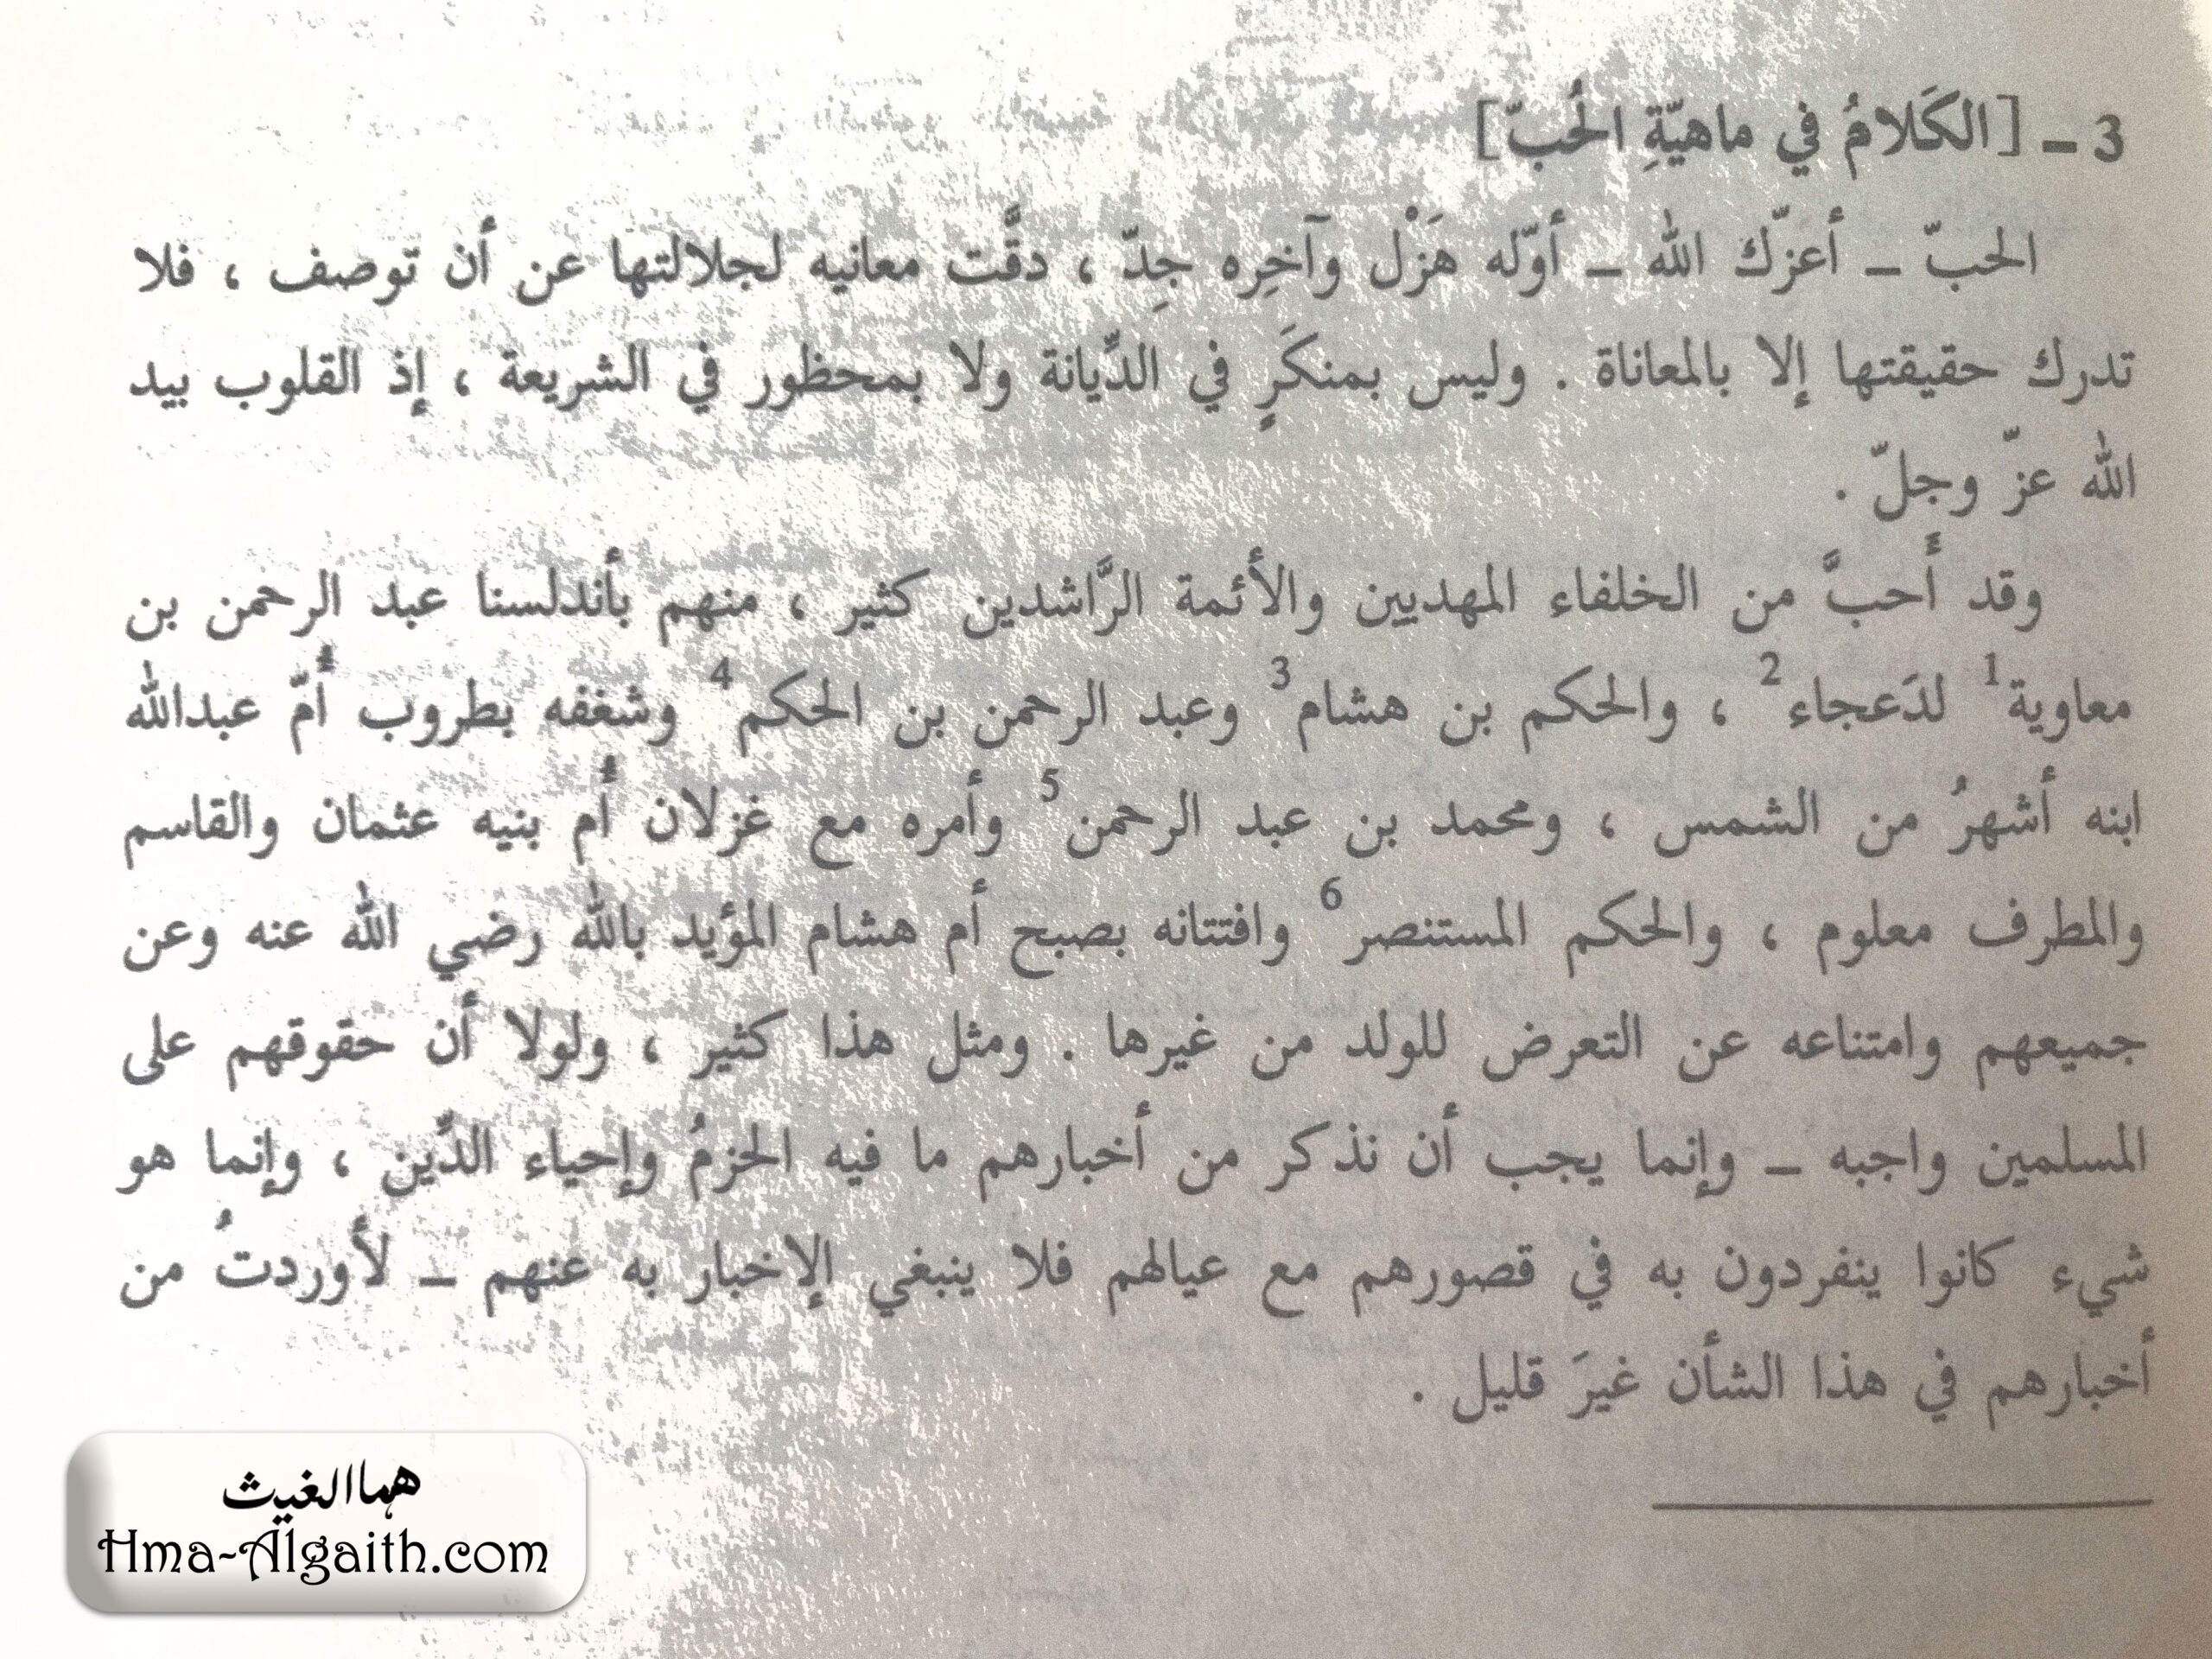 3 ـ [الكَلامُ في ماهيّةِ الحُبّ]
الحبّ ـ أعزّك الله ـ أوّله هَزْل وآخِره جِدّ ، دقَّت معانيه لجلالتها عن أن توصف ، فلا
تدرك حقيقتها إلا بالمعاناة . وليس بمنكَرٍ في الدِّيانة ولا بمحظور في الشريعة ، إذ القلوب بيد
الله عزّ وجلّ .
وقد أَحبَّ من الخلفاء المهديين والأئمة الرَّاشدين كثير ، منهم بأندلسنا عبد الرحمن بن
معاوية1 لدَعجاء2 ، والحكم بن هشام3 وعبد الرحمن بن الحكم4 وشغفه بطروب أُمّ عبدالله
ابنه أشهرُ من الشمس ، ومحمد بن عبد الرحمن5 وأمره مع غزلان أُم بنيه عثمان والقاسم
والمطرف معلوم ، والحكم المستنصر6 وافتتانه بصبح أم هشام المؤيد بالله رضي الله عنه وعن
جميعهم وامتناعه عن التعرض للولد من غيرها . ومثل هذا كثير ، ولولا أن حقوقهم على
المسلمين واجبه ـ وإنما يجب أن نذكر من أخبارهم ما فيه الحزمُ وإحياء الدِّين ، وإنما هو
شيء كانوا ينفردون به في قصورهم مع عيالهم فلا ينبغي الإخبار به عنهم ـ لأوردتُ من
أخبارهم في هذا الشأن غيرَ قليل .
هما الغيث
Hma-Algaith.com